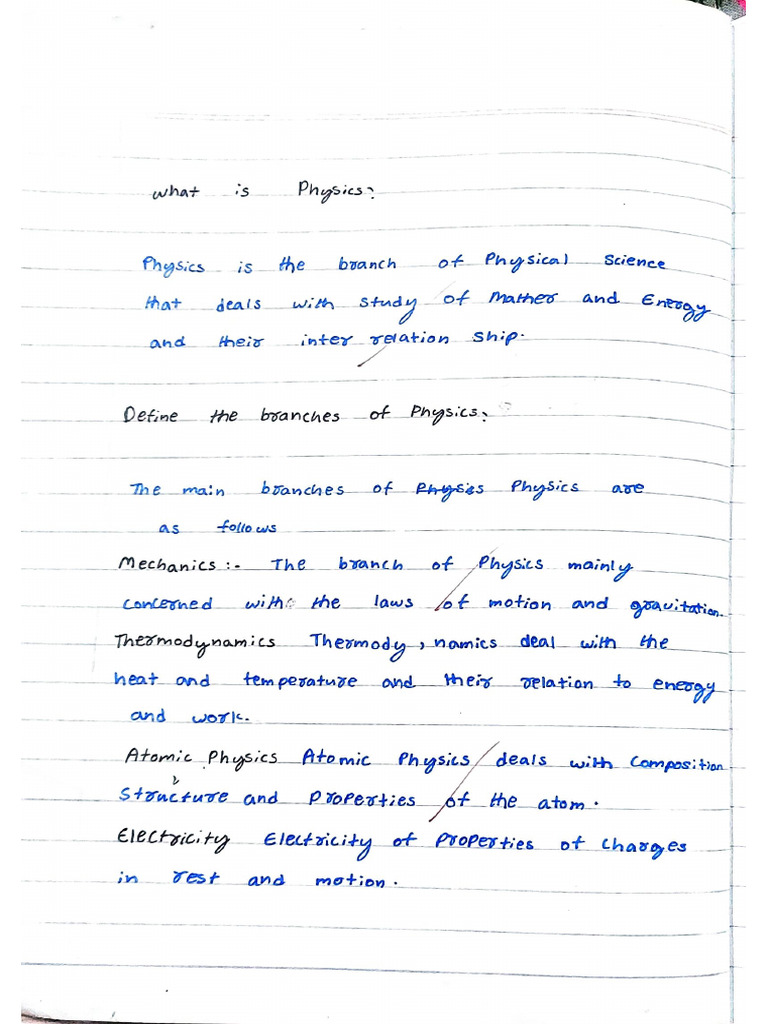 What is Physics?
Physics is the branch of Physical Science
that deals with study of Mather and Energy
and their inter relation ship.
Define the branches of Physics?
The main branches of Physies Physics are
as follows
Mechanics:- The branch of Physics mainly
concerned with the laws of motion and gravitation.
Thermodynamics Thermody, namics deal with the
heat and temperature and their relation to energy
and work.
Atomic Physics Atomic Physics deals with Composition
Structure and Properties of the atom.
Electricity Electricity of Properties of Charges
in rest and motion.